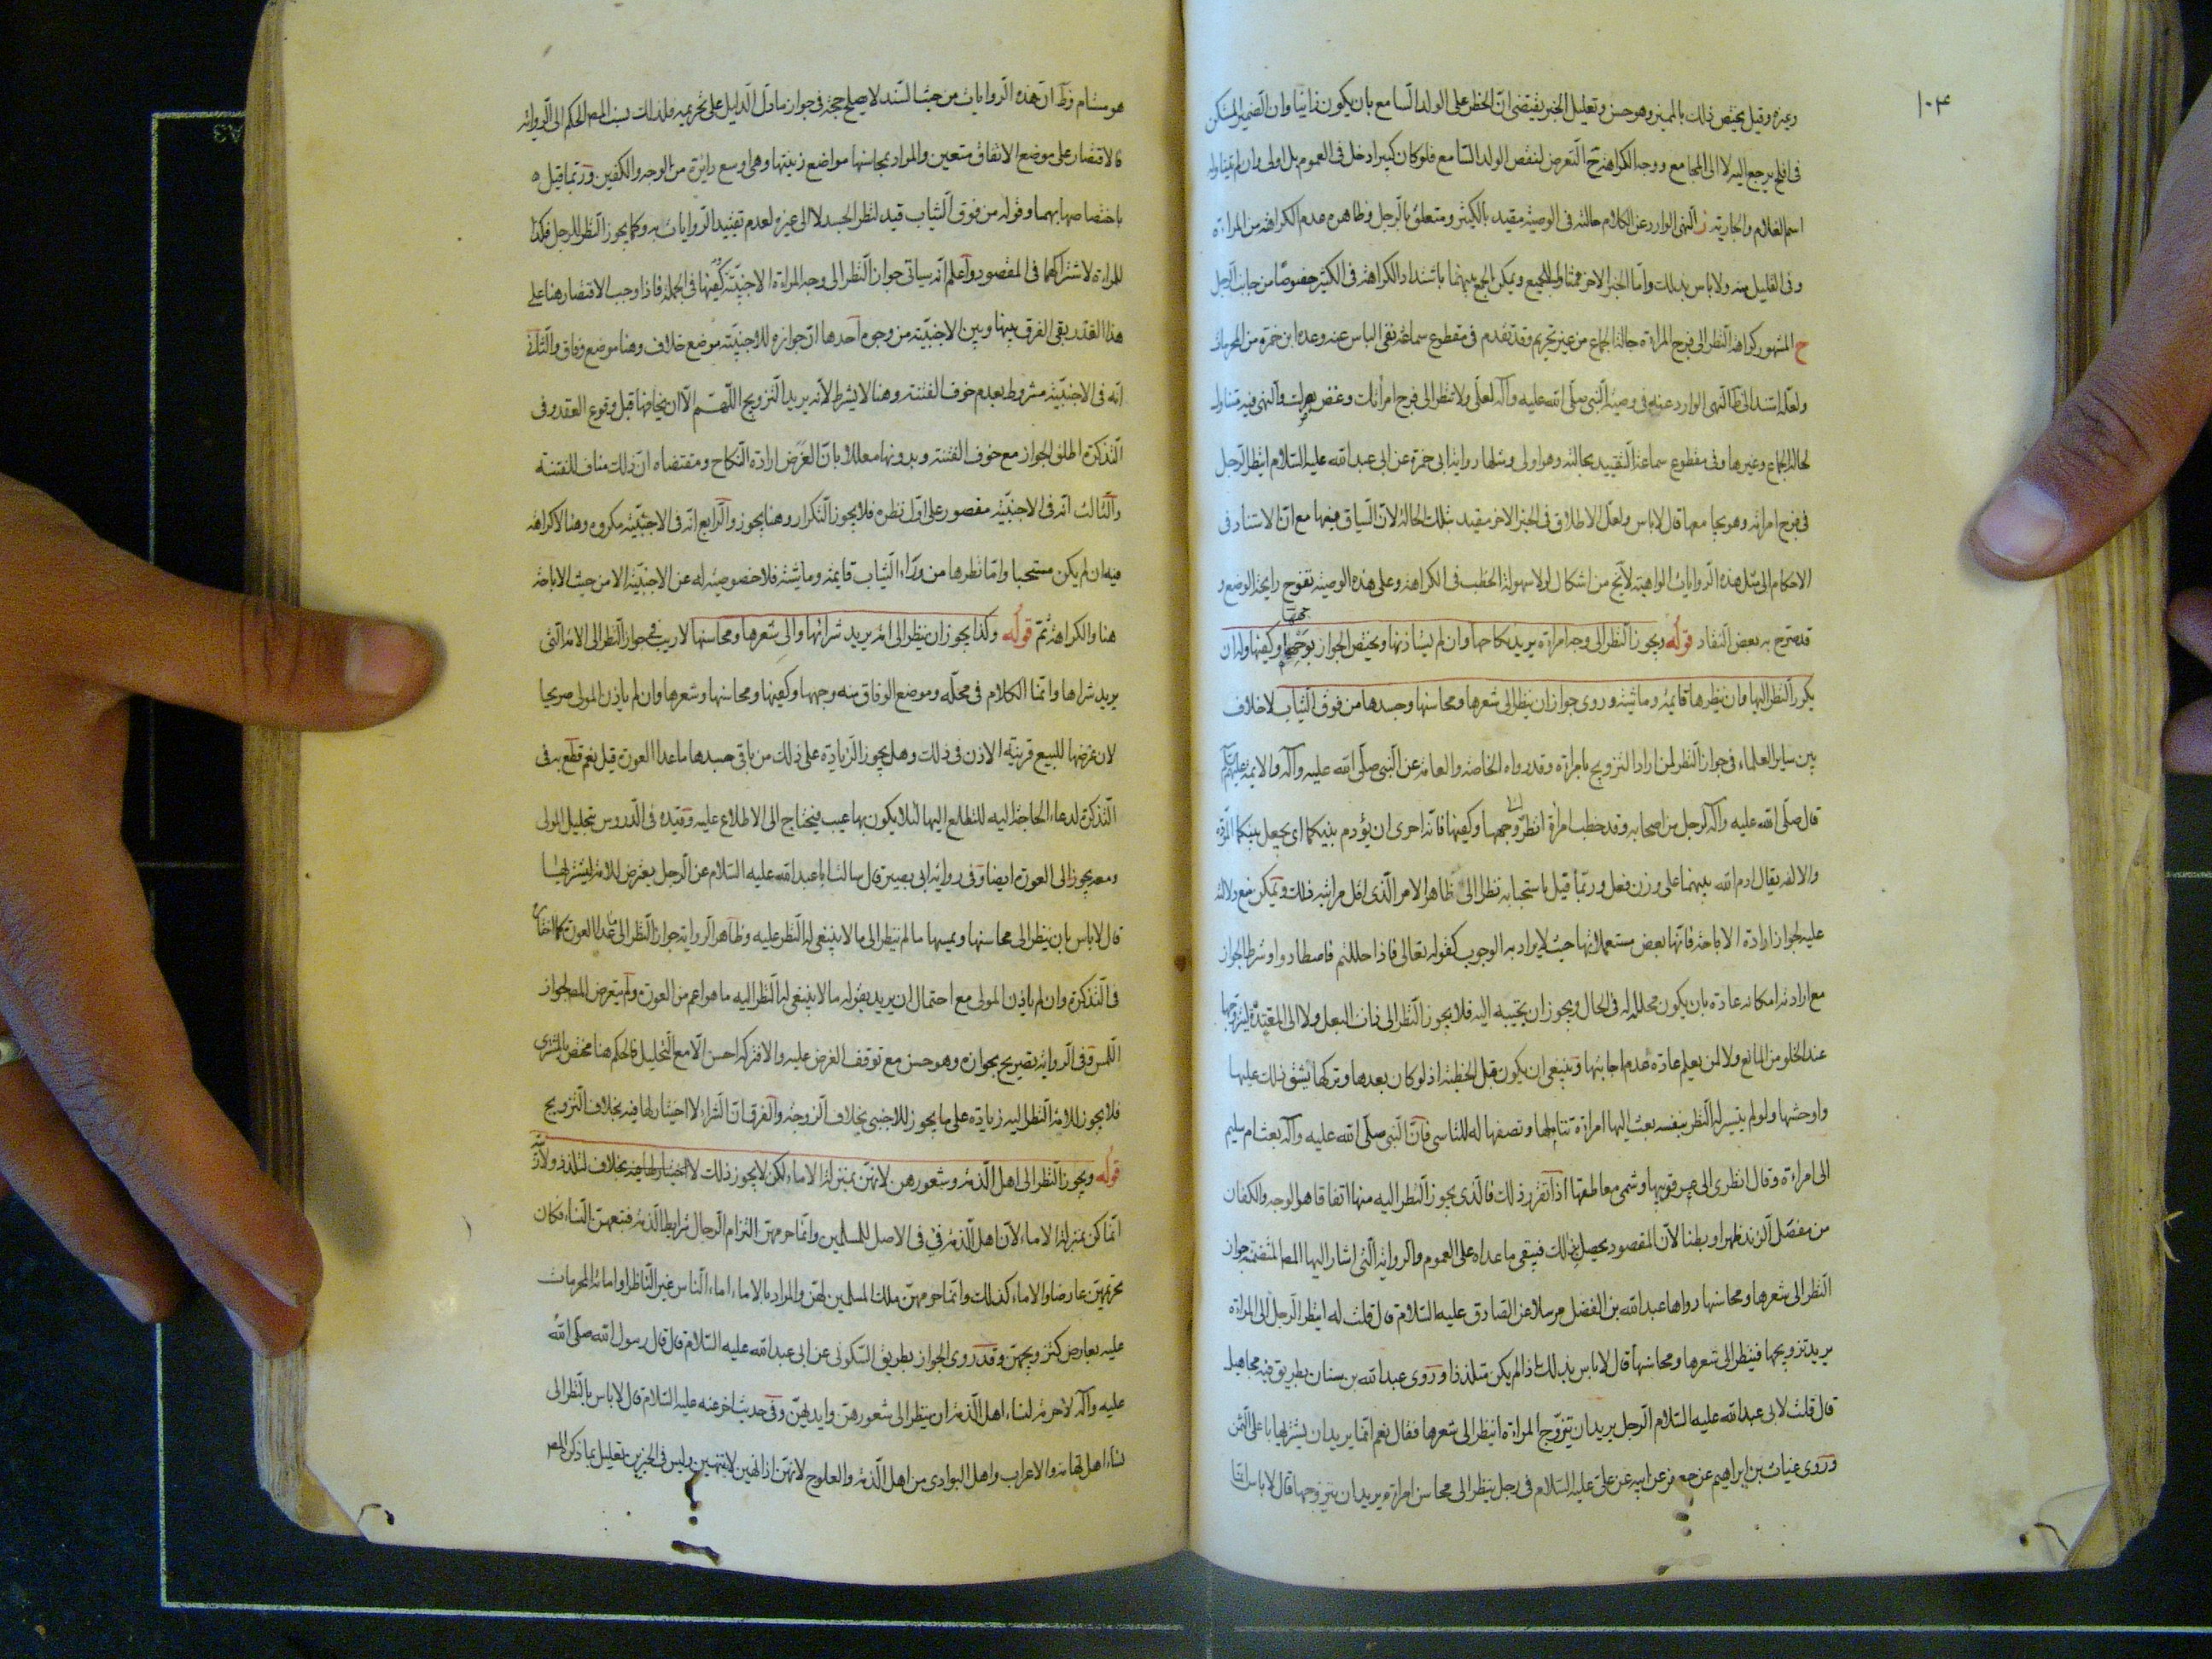 ١٠٣
وغيره وقيل يختص ذلك بالمميز وهو حسن وتعليل الخبر يقتضى انّ الخطر على الولد السّامع بان يكون زانيا وان الضمير المستكن
فى افلح يرجع اليه لا الى المجامع ووجه الكراهة ح التّعرض لنقص الولد السّامع فلو كان كبيرا دخل فى العموم بل اولى وان لم يتناوله
اسم الغلام والجارية ز النهى الوارد عن الكلام حالته فى الوصية مقيد بالكثير ومتعلق بالرجل وظاهره عدم الكراهة من المراءة
وفى القليل منه ولا باس بذلك وامّا الخبر الاخر فمتناول للجميع ويمكن الجمع بينهما باشتداد الكراهة فى الكثير خصوصًا من جانب الرجل
ح المشهور كراهة النظر الى فرج المراة حالة الجماع من غير تحريم وقد تقدم فى مقطوع سماعة نفى الباس عنه وعده ابن حمزة من المحرمات
ولعلّه استند الى ظاهر النهى الوارد عنه فى وصية النّبى صلّى الله عليه وآله لعلّى ولا تنظر الى فرج امراتك وغض بصرك والنهى فيه متناول
لحالة الجماع وغيرها وفى مقطوع سماعة التّقييد بحالته وهو اولى ومثلها رواية ابى حمزة عن ابى عبد الله عليه السّلام اينظر الرّجل
فى فرج امراته وهو يجامعها قال لا باس ولعلّ الاطلاق فى الخبر الاخر مقيد بتلك الحالة لانّ السّياق فيها مع انّ الاستناد فى
الاحكام الى مثل هذه الروايات الواهية لا يخ من اشكال لولا سهولة الخطب فى الكراهة وعلى هذه الوصية تفوح رايحة الوضع و
قد صرح به بعض النقاد قوله ويجوز النظر الى وجه امراة يريد نكاحها وان لم يستاذنها ويختص الجواز بوجهها وكفيها وله ان
يكرر النظر اليها وان ينظرها قايمة وماشية وروى جواز ان ينظر الى شعرها ومحاسنها وجسدها من فوق الثياب لا خلاف
بين ساير العلماء فى جواز النظر لمن اراد التزويج بامراة وقد رواه الخاصة والعامة عن النبى صلّى الله عليه وآله والايمة عليهم السّلام
قال صلّى الله عليه وآله لرجل من اصحابه وقد خطب امراة انظر الى وجهها وكفيها فانّه احرى ان يؤدم بينكما اى يجعل بينكما المودة
والالفة يقال ادم الله بينهما على وزن فعل وربّما قيل باستحبابه نظرا الى ظاهر الامر الّذى اقل مراتبه ذلك ويمكن منع دلالته
عليه لجواز ارادة الاباحة فانّها بعض مستعملاتها حيث لا يراد به الوجوب كقوله تعالى فاذا حللتم فاصطادوا وشرط الجواز
مع ارادته امكانه عادة بان يكون محللة له فى الحال ويجوز ان يجيبه اليه فلا يجوز النظر الى ذات البعل ولا الى المعتدة ليتزوجها
عند الخلو من المانع ولا لمن يعلم عادة عدم اجابتها وينبغى ان يكون قبل الخطبة اذ لو كان بعدها وتركها يشق ذلك عليها
واوحشها ولو لم يتيسر له النظر بنفسه بعث اليها امراة تتاملها وتصفها له للتاسى فانّ النّبى صلّى الله عليه وآله بعث ام سليم
الى امراءة وقال انظرى الى عرقوبيها وشمى معاطفها اذا تقرر ذلك فالّذى يجوز النظر اليه منها اتفاقا هو الوجه والكفان
من مفصل الزند ظهرا وبطنا لانّ المقصود يحصل بذلك فيبقى ما عداه على العموم والرواية الّتى اشار اليها المص المتضمنة جواز
النّظر الى شعرها ومحاسنها رواها عبد الله بن الفضل مرسلا عن الصّادق عليه السّلام قال قلت له اينظر الرجل الى المراة
يريد تزويجها فينظر الى شعرها ومحاسنها قال لا باس بذلك اذا لم يكن متلذذا وروى عبد الله بن سنان بطريق فيه مجاهيل
قال قلت لابى عبد الله عليه السّلام الرّجل يريد ان يتزوّج المراءة اينظر الى شعرها فقال نعم انّما يريد ان يشتريها باعلى الثمن
وروى غياث بن ابراهيم عن جعفر عن ابيه عن على عليه السّلام فى رجل ينظر الى محاسن امراة يريد ان يتزوجها قال لا باس انّما
هو مستام وظ انّ هذه الرّوايات من حيث السّند لا يصلح حجة فى جواز ما دلّ الدّليل على تحريمه فلذلك نسب المص الحكم الى الرواية
فالاقتصار على موضع الاتفاق متعين والمراد بمحاسنها مواضع زينتها وهى اوسع دائرة من الوجه والكفين وربّما قيل
باختصاصها بهما وقوله من فوق الثياب قيد لنظر الجسد لا الى غيره لعدم تقييد الرّوايات به وكما يجوز النّظر للرجل فكذا
للمراءة لاشتراكهما فى المقصود واعلم انّه سياتى جواز النّظر الى وجه المراة الاجنبيّة وكفيها فى الجملة فاذا وجب الاقتصار هنا على
هذا القدر بقى الفرق بينها وبين الاجنبيّة من وجوه احدها انّ جوازه للاجنبيّة موضع خلاف وهنا موضع وفاق والثّانى
انّه فى الاجنبيّة مشروط بعدم خوف الفتنة وهنا لا يشرط لانّه يريد التّزويج اللّهمّ الّا ان يخافها قبل وقوع العقد وفى
التّذكرة اطلق الجواز مع خوف الفتنة وبدونها معللا بانّ الغرض ارادة النّكاح ومقتضاه انّ ذلك مناف للفتنة
والثّالث انّه فى الاجنبيّة مقصور على اوّل نظره فلا يجوز التّكرار وهنا يجوز والرّابع انّه فى الاجنبيّة مكروه وهنا لا كراهة
فيه ان لم يكن مستحبا وامّا نظرها من وراء الثّياب قايمة وماشية فلا خصوصية له عن الاجنبيّة الا من حيث الاباحة
هنا والكراهة ثمّ قوله وكذا يجوز ان ينظر الى امة يريد شرائها والى شعرها ومحاسنها لا ريب فى جواز النّظر الى الامة الّتى
يريد شراها وانّما الكلام فى محلّه وموضع الوفاق منه وجهها وكفيها ومحاسنها وشعرها وان لم ياذن المولى صريحا
لان عرضها للبيع قرينة الاذن فى ذلك وهل يجوز الزّيادة على ذلك من باقى جسدها ما عدا العورة قيل نعم قطع به فى
التّذكرة لدعاء الحاجة اليه للتطلع اليها لئلا يكون بها عيب فيحتاج الى الاطلاع عليه وقيده فى الدّروس بتحليل المولى
ومعه يجوز الى العورة ايضا وفى رواية ابى بصير قال سالت ابا عبد الله عليه السّلام عن الرّجل يعترض للامة ليشتريها
قال لا باس بان ينظر الى محاسنها ويمسها ما لم ينظر الى ما لا ينبغى له النّظر عليه وظاهر الرواية جواز النّظر الى ما عدا العورة كما اختاره
فى التّذكرة وان لم ياذن المولى مع احتمال ان يريد بقوله ما لا ينبغى له النّظر اليه ما هو اعم من العورة ولم يتعرض المص لجواز
اللّمس وفى الرواية تصريح بجوازه وهو حسن مع توقف الغرض عليه والا فتركه احسن الّا مع التّحليل فالحكم هنا مختص بالمشترى
فلا يجوز للامة النّظر اليه زيادة على ما يجوز للاجنبى بخلاف الزوجة والفرق انّ الشّراء لا اختيار لها فيه بخلاف التّزويج
قوله ويجوز النّظر الى اهل الذّمة وشعورهن لانهنّ بمنزلة الاماء لكن لا يجوز ذلك لتلذذ ولا ريبة
انّما كن بمنزلة الاماء لانّ اهل الذّمة فئ فى الاصل للمسلمين وانّما حرمهنّ التزام الرّجال شرايط الذّمة فتبعهنّ النّساء فكان
تحريمهنّ عارضا والاماء كذلك وانّما حرمهنّ ملك المسلمين لهنّ والمراد بالاماء اماء النّاس غير النّاظر او امائه المحرمات
عليه بعارض كتزويجهن وقد روى الجواز بطريق السّكونى عن ابى عبد الله عليه السّلام قال قال رسول الله صلّى الله
عليه وآله لا حرمة لنساء اهل الذّمة ان ينظر الى شعورهنّ وايديهنّ وفى حديث اخر عنه عليه السّلام قال لا باس بالنّظر الى
نساء اهل تهامة والاعراب واهل البوادى من اهل الذّمة والعلوج لانهنّ اذا نهين لا ينتهين وليس فى الخبرين تعليل بما ذكره المص